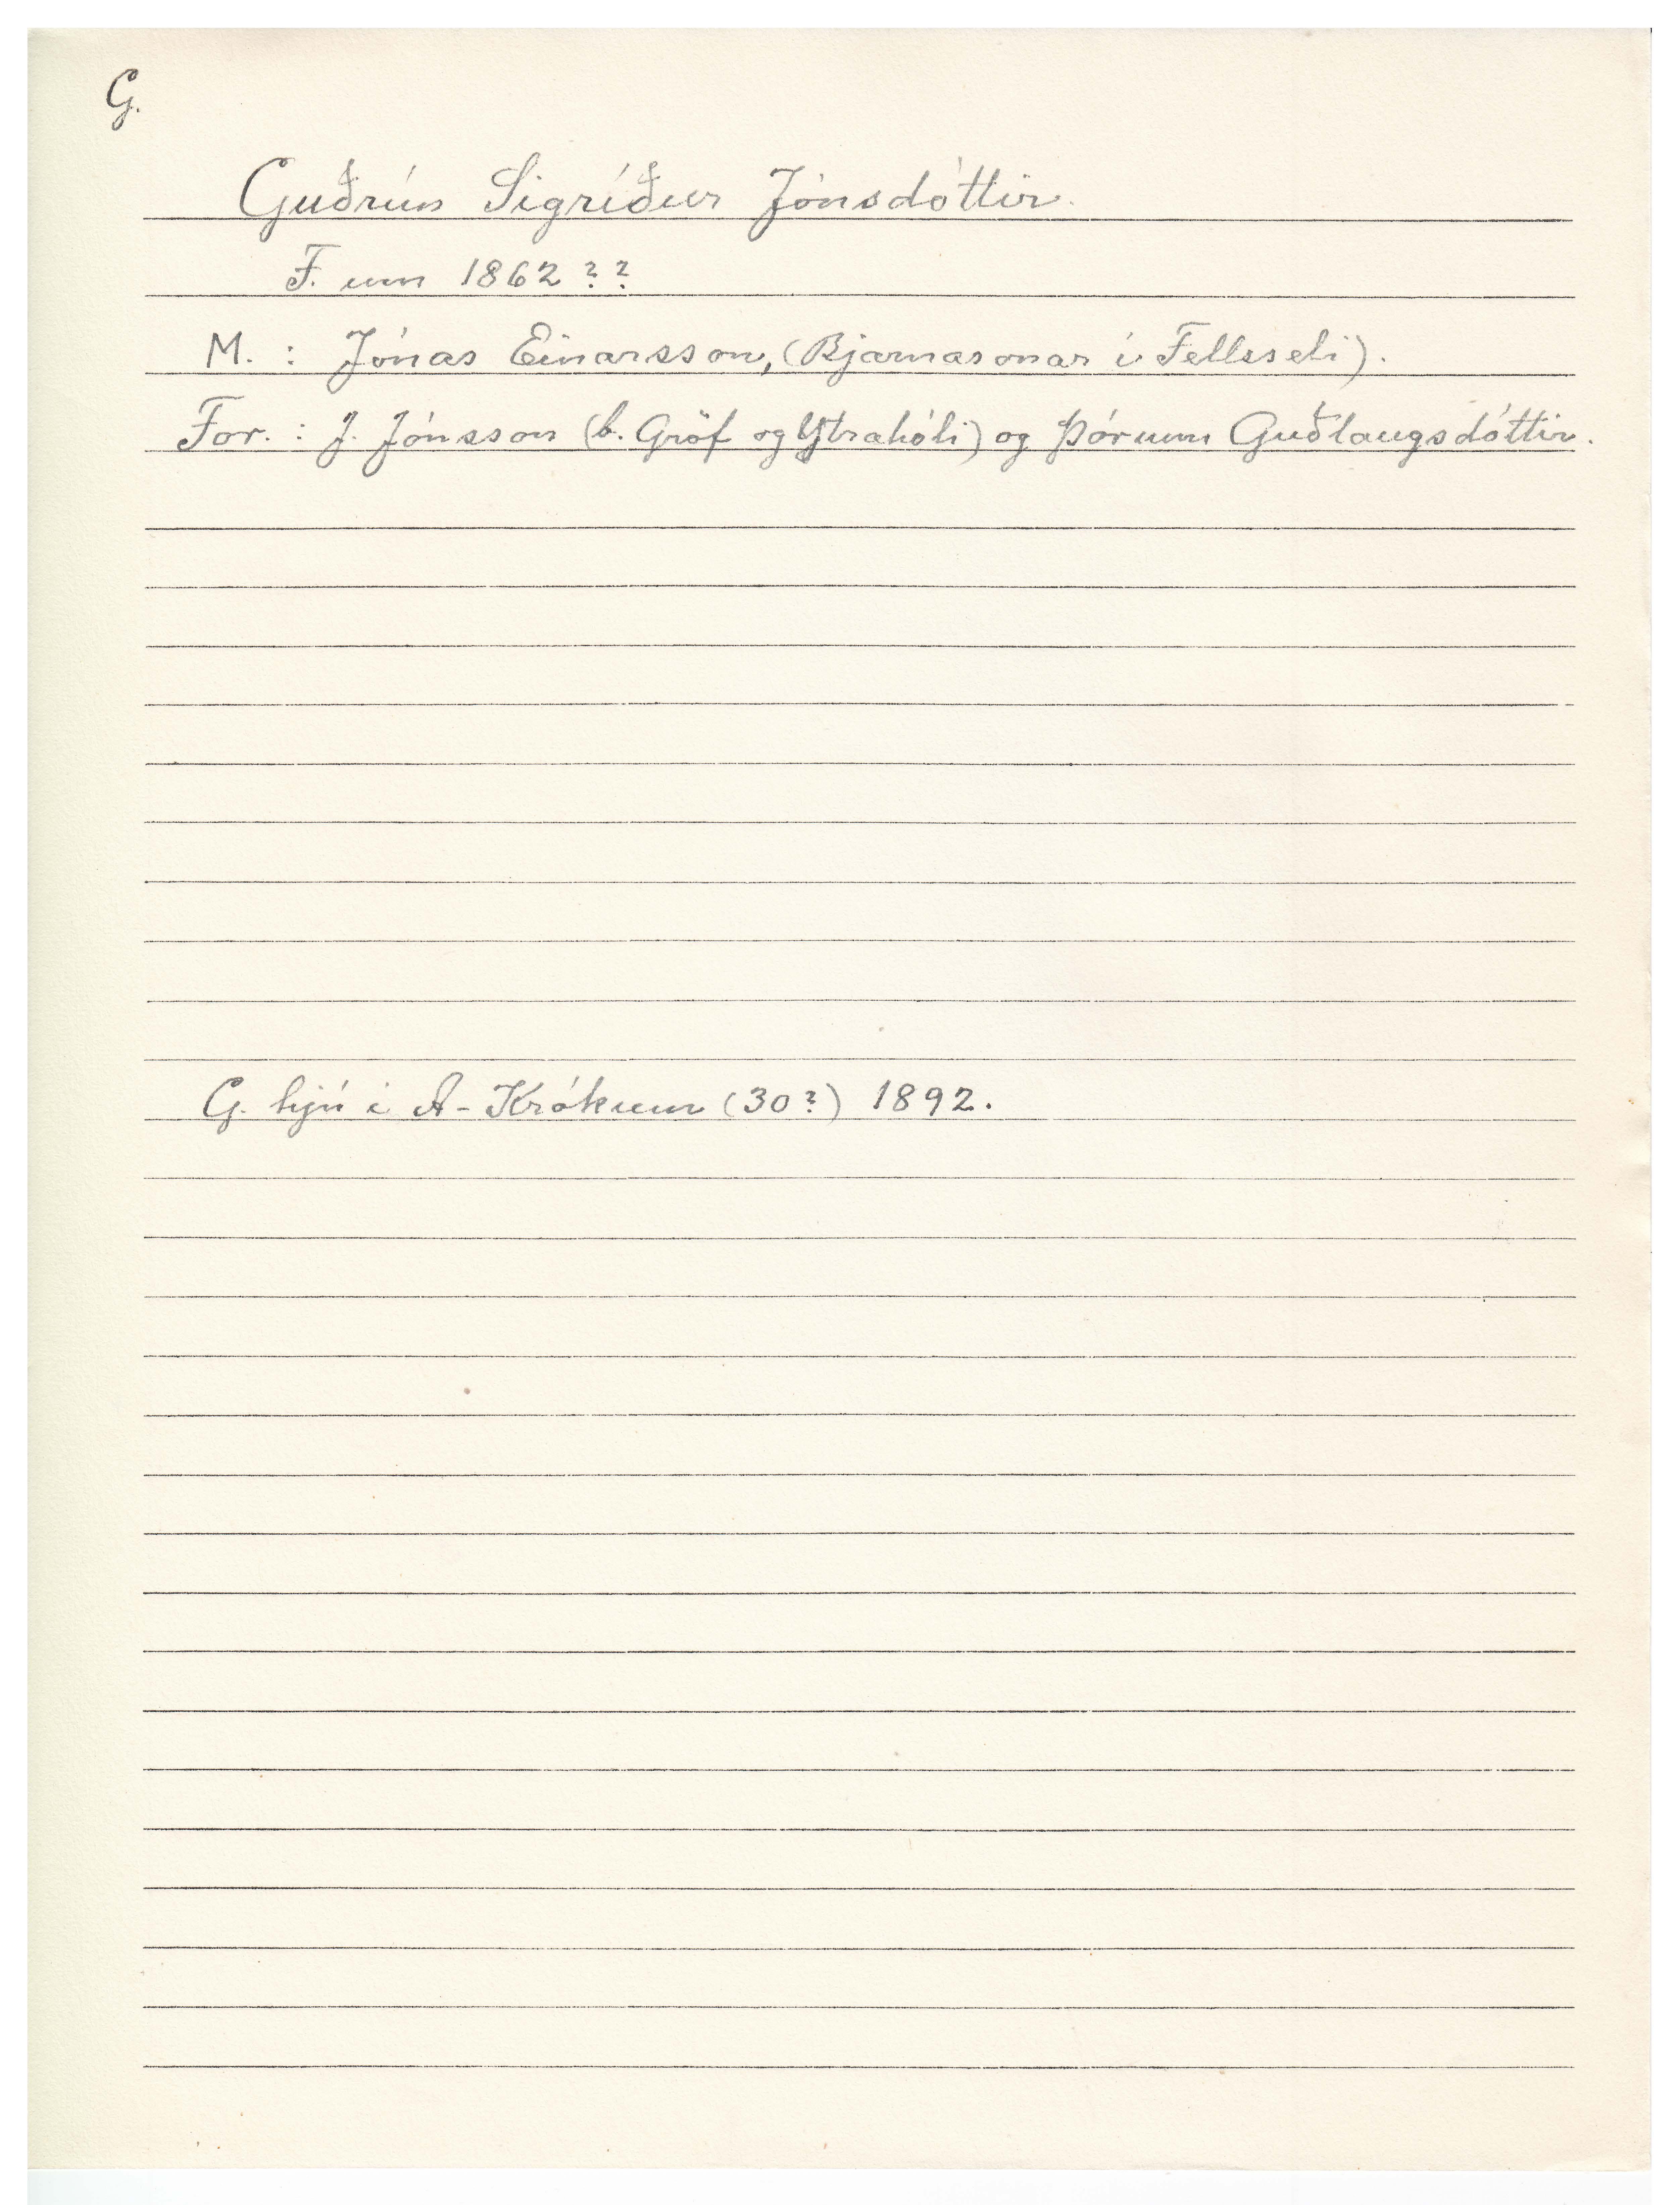 G.
Guðrún Sigríður Jónsdóttir.
F. um 1862 ? ?
M. : Jónas Einarsson, (Bjarnasonar í Fellsseli).
For. : J. Jónsson (b. Gröf og Ytrahóli) og Þórunn Guðlaugsdóttir.
G. hjú í A-Krókum (30?) 1892.